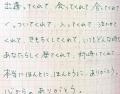 出逢ってくれて 会ってくれて 会ってくれて
くっついてくれて 入ってくれて 泣かせて
くれて きもちくしてくれて いつもどんな時も
あなたらしく居てくれて 時時してくれて
本当にほんとに、ほんとうに、ありがとう。
心から ありがとう。